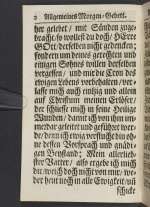 2 Allgemeines Morgen-Gebett.
her gelebet / mit Sünden zuge-
bracht: so wollest du doch / HErr
GOtt / derselben nicht gedencken;
sondern umb deines gerechten und
einigen Sohnes willen derselben
vergessen / und mir die Cron des
ewigen Lebens vorbehalten / ver-
lasse mich auch einzig und allein
auf Christum meinen Erlöser /
der schliesse mich in seine heilige
Wunden / damit ich von ihm im-
merwar geleitet und geführet wer-
de / denn ich ewig verflucht bin oh-
ne dessen Vorsprach und gnädi-
gen Beystand; Mein allerlieb-
ster Vatter / also ergebe ich mich
dir / weich doch nicht von mir / we-
der heut noch in alle Ewigkeit / uñ
schicke